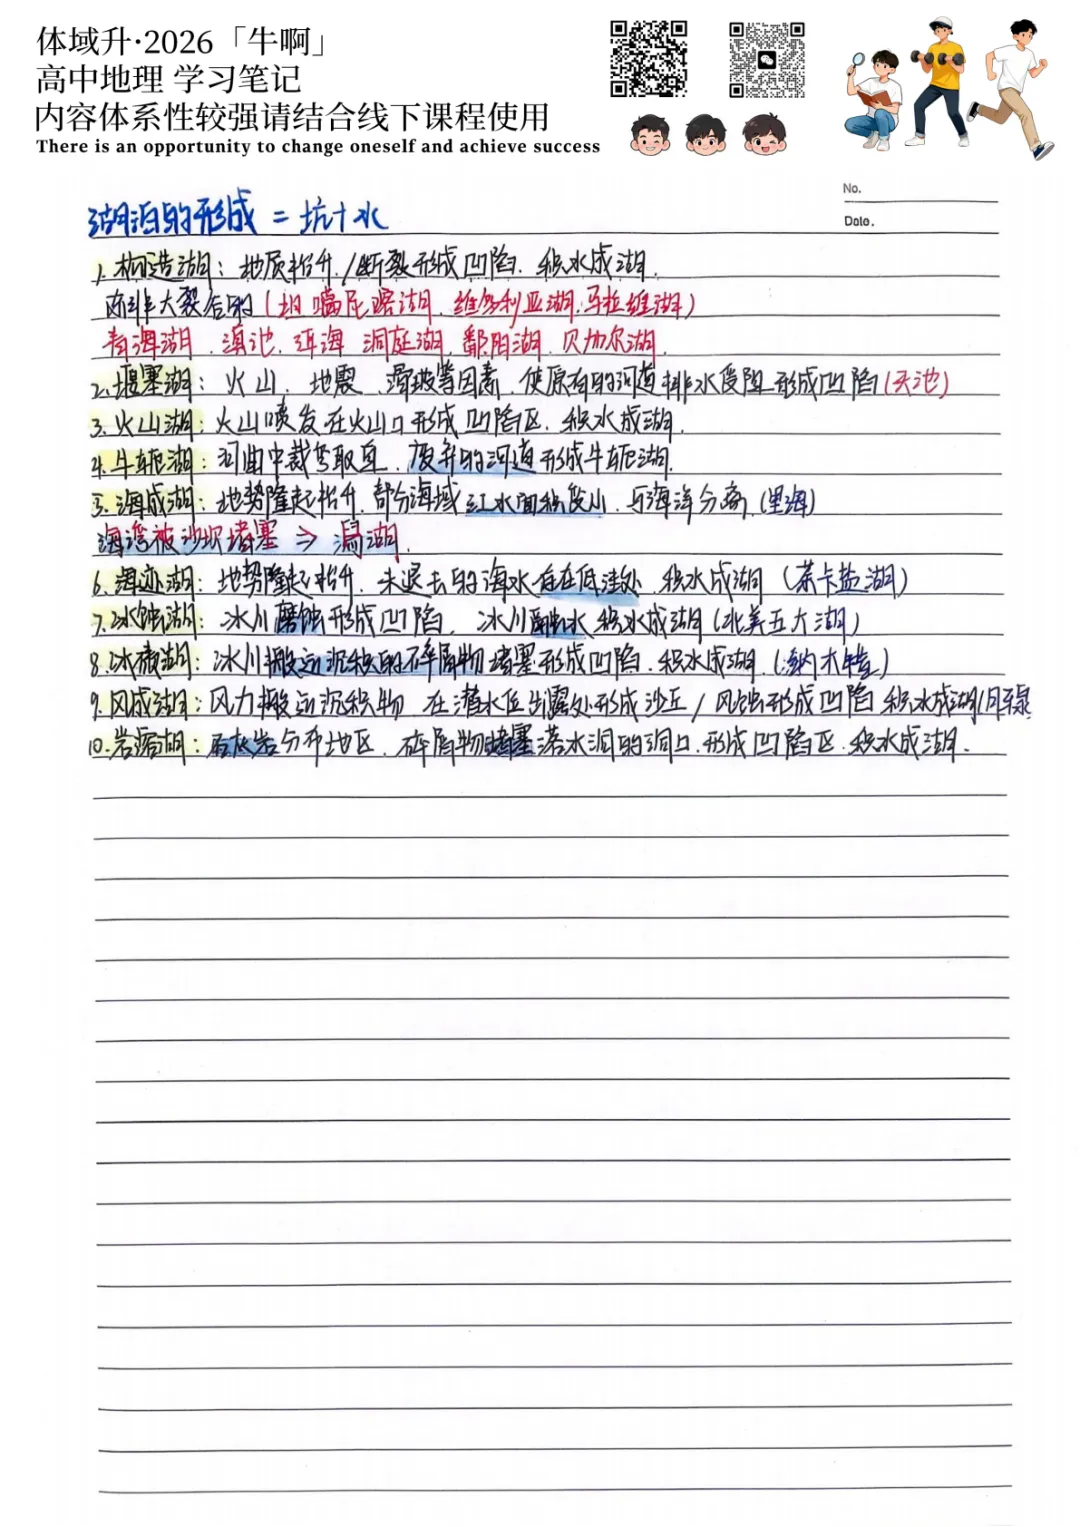 体域升·2026「牛啊」
高中地理 学习笔记
内容体系性较强请结合线下课程使用
There is an opportunity to change oneself and achieve success
No.
Date.
湖泊的形成 = 坑+水
1. 构造湖：地质抬升/断裂形成凹陷.积水成湖.
东非大裂谷的(坦噶尼喀湖.维多利亚湖.马拉维湖)
青海湖.滇池.洱海 洞庭湖.鄱阳湖.贝加尔湖.
2. 堰塞湖：火山、地震、滑坡等因素.使原有的河道排水受阻形成凹陷(天池)
3. 火山湖：火山喷发在火山口形成凹陷区.积水成湖.
4. 牛轭湖：河曲中裁弯取直.废弃的河道形成牛轭湖.
5. 海成湖：地势隆起抬升.部分海域 水面积变小.与海洋分离.(里海)
海湾被沙坝堵塞 ⇒ 潟湖.
6. 海迹湖：地势隆起抬升.未退去的海水存在低洼处.积水成湖(茶卡盐湖)
7. 冰蚀湖：冰川磨蚀形成凹陷.冰川融水积水成湖(北美五大湖)
8. 冰碛湖：冰川搬运沉积的碎屑物堵塞形成凹陷.积水成湖.(纳木错)
9. 风成湖：风力搬运沉积物 在潜水位出露处形成沙丘/风蚀形成凹陷 积水成湖(月牙泉
10. 岩溶湖：石灰岩分布地区.碎屑物堵塞落水洞的洞口.形成凹陷区.积水成湖.